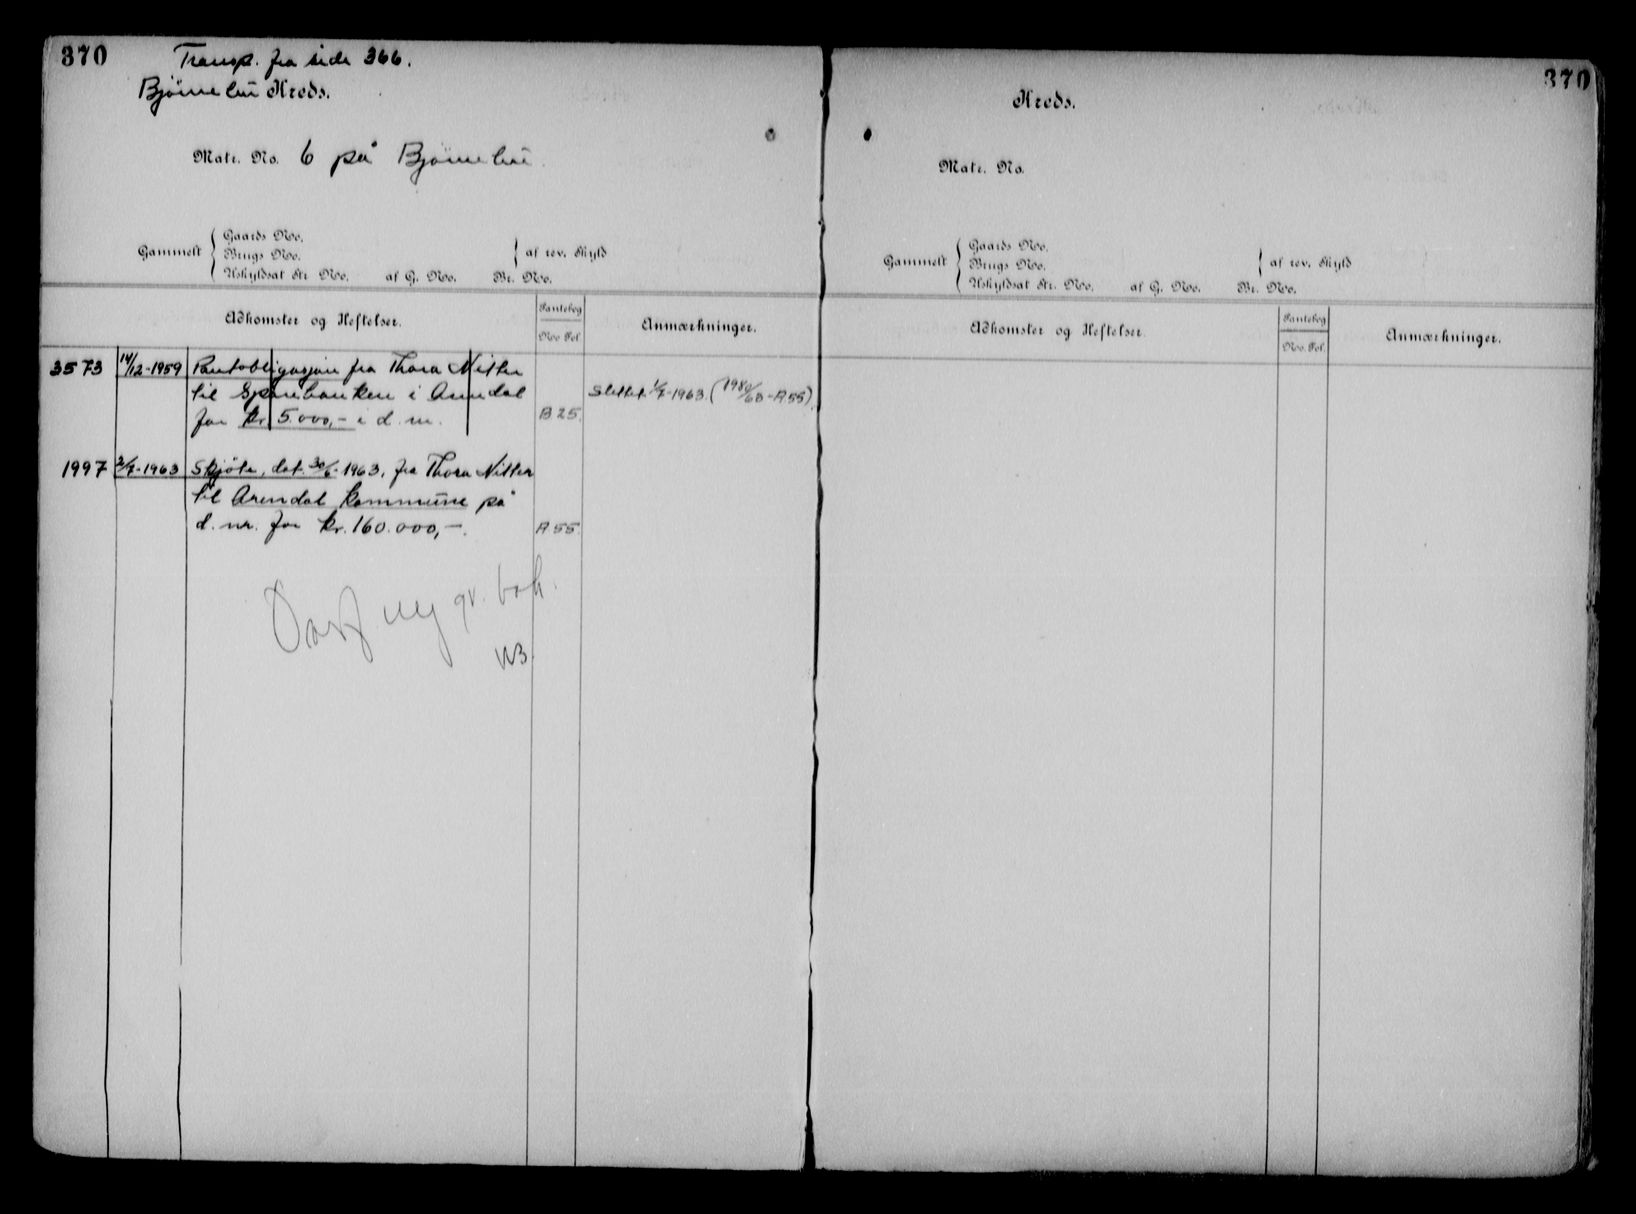 370
Transp. fra side 366.
Bjørnebu Kreds.
Matr. No. 6 på Bjørnebu.
Gammelt
Gaards No.
Brugs No.
Uskyldsat Str. No. af G. No. Br. No.
af rev. Skyld
Adkomster og Heftelser.
Pantebog
No. Fol.
Anmærkninger.
3573 14/12-1959 Pantobligasjon fra Thora Nitter
til Sparebanken i Arendal
for kr. 5.000,- i d. nr. B 25.
Slettet 1/7-1963. (1980/63-A55).
1997 2/7-1963 Skjöte, dat. 30/6-1963, fra Thora Nitter
til Arendal kommune på
d. nr. for kr. 160.000,-. A 55.
ny gr. bok.
370
Kreds.
Matr. No.
Gammelt
Gaards No.
Brugs No.
Uskyldsat Str. No. af G. No. Br. No.
af rev. Skyld
Adkomster og Heftelser.
Pantebog
No. Fol.
Anmærkninger.